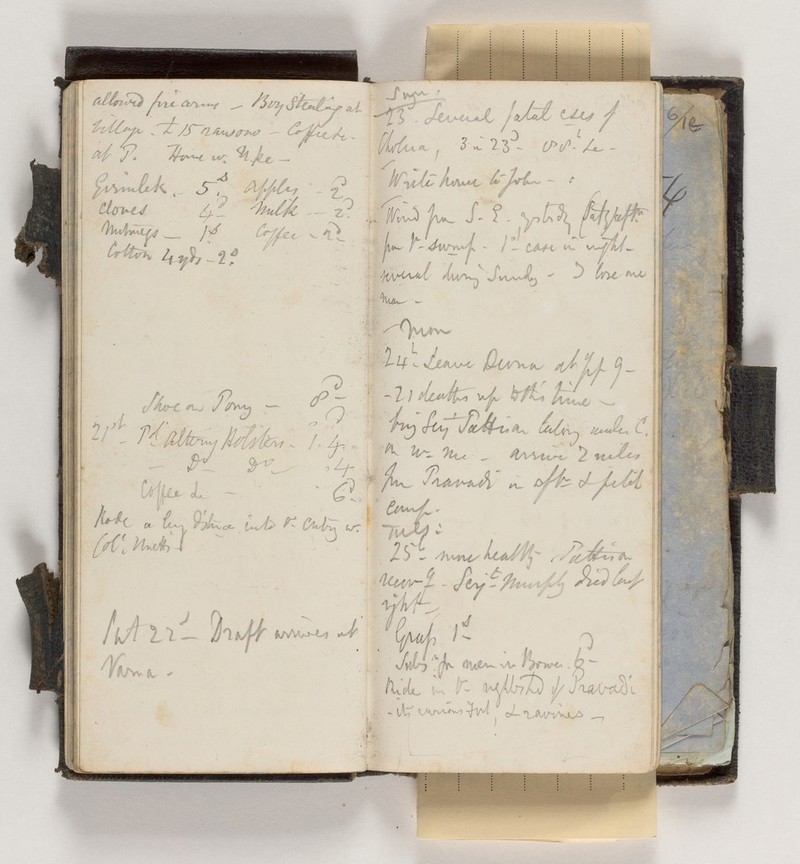 allowed fire arms - Boy Stealing at
village. £15 ransom - Coffee &c.
at P. Home w.
Gimlek. 5.d apples - 2d
cloves 4d milk - 2d.
Nutmegs - 1s Coffee - 2d
Cotton 4 yds - 2s.
Shoe on Pony - 8d
21st - Pd altering Holsters - 1. 4d
- Do Do - 4
Coffee &c - 6d
Rode a long distance into the Cntry w.
Col.
Sat 22d - Draft arrives at
Varna -
Sun.
23. Several fatal cases of
Cholera, 3 in 23d 88th &c -
Write home to John -
Wind from S. E. yesterdy
from the swamp - 1st case in night -
several during Sunday - I lose one
man -
Mon
24th Leave Devna at ½ p 9 -
- 21 deaths up to this time -
bring Serjt Pattison
on w. me - arrive 2 miles
from Pravadi in aftn & pitch
camp.
Tues:
25th more healthy Pattison
recovg - Serjt Murphy died last
night -
Grass 1s
Subsn for men in Bower 6d
Ride in the neighbrhd of Pravadi
- its curious Fort, & ravines -